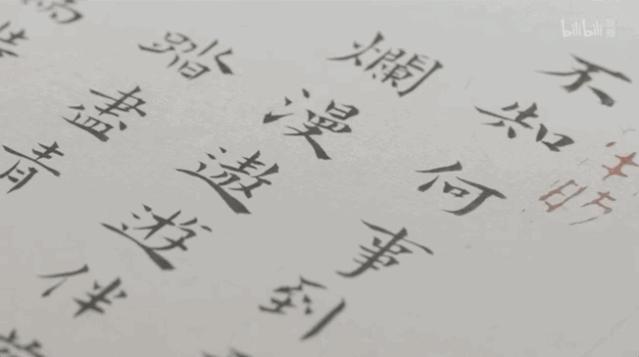 bilibili
不知何事到
爛漫遨遊伴
踏盡青